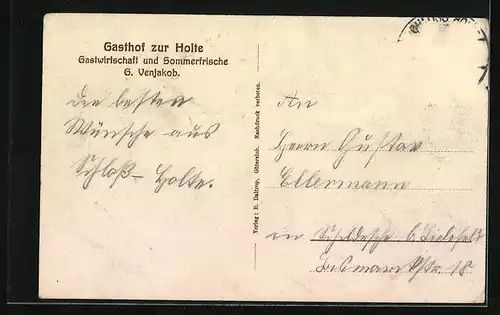 Gasthof zur Holte
Gastwirtschaft und Sommerfrische
G. Venjakob.
die besten
Wünsche aus
Schloß-Holte.
Verlag: R. Daltrop, Gütersloh. Nachdruck verboten.
An
Herrn Gustav
Ellermann
in Schildesche b Bielefeld
Bismarckstr. 18